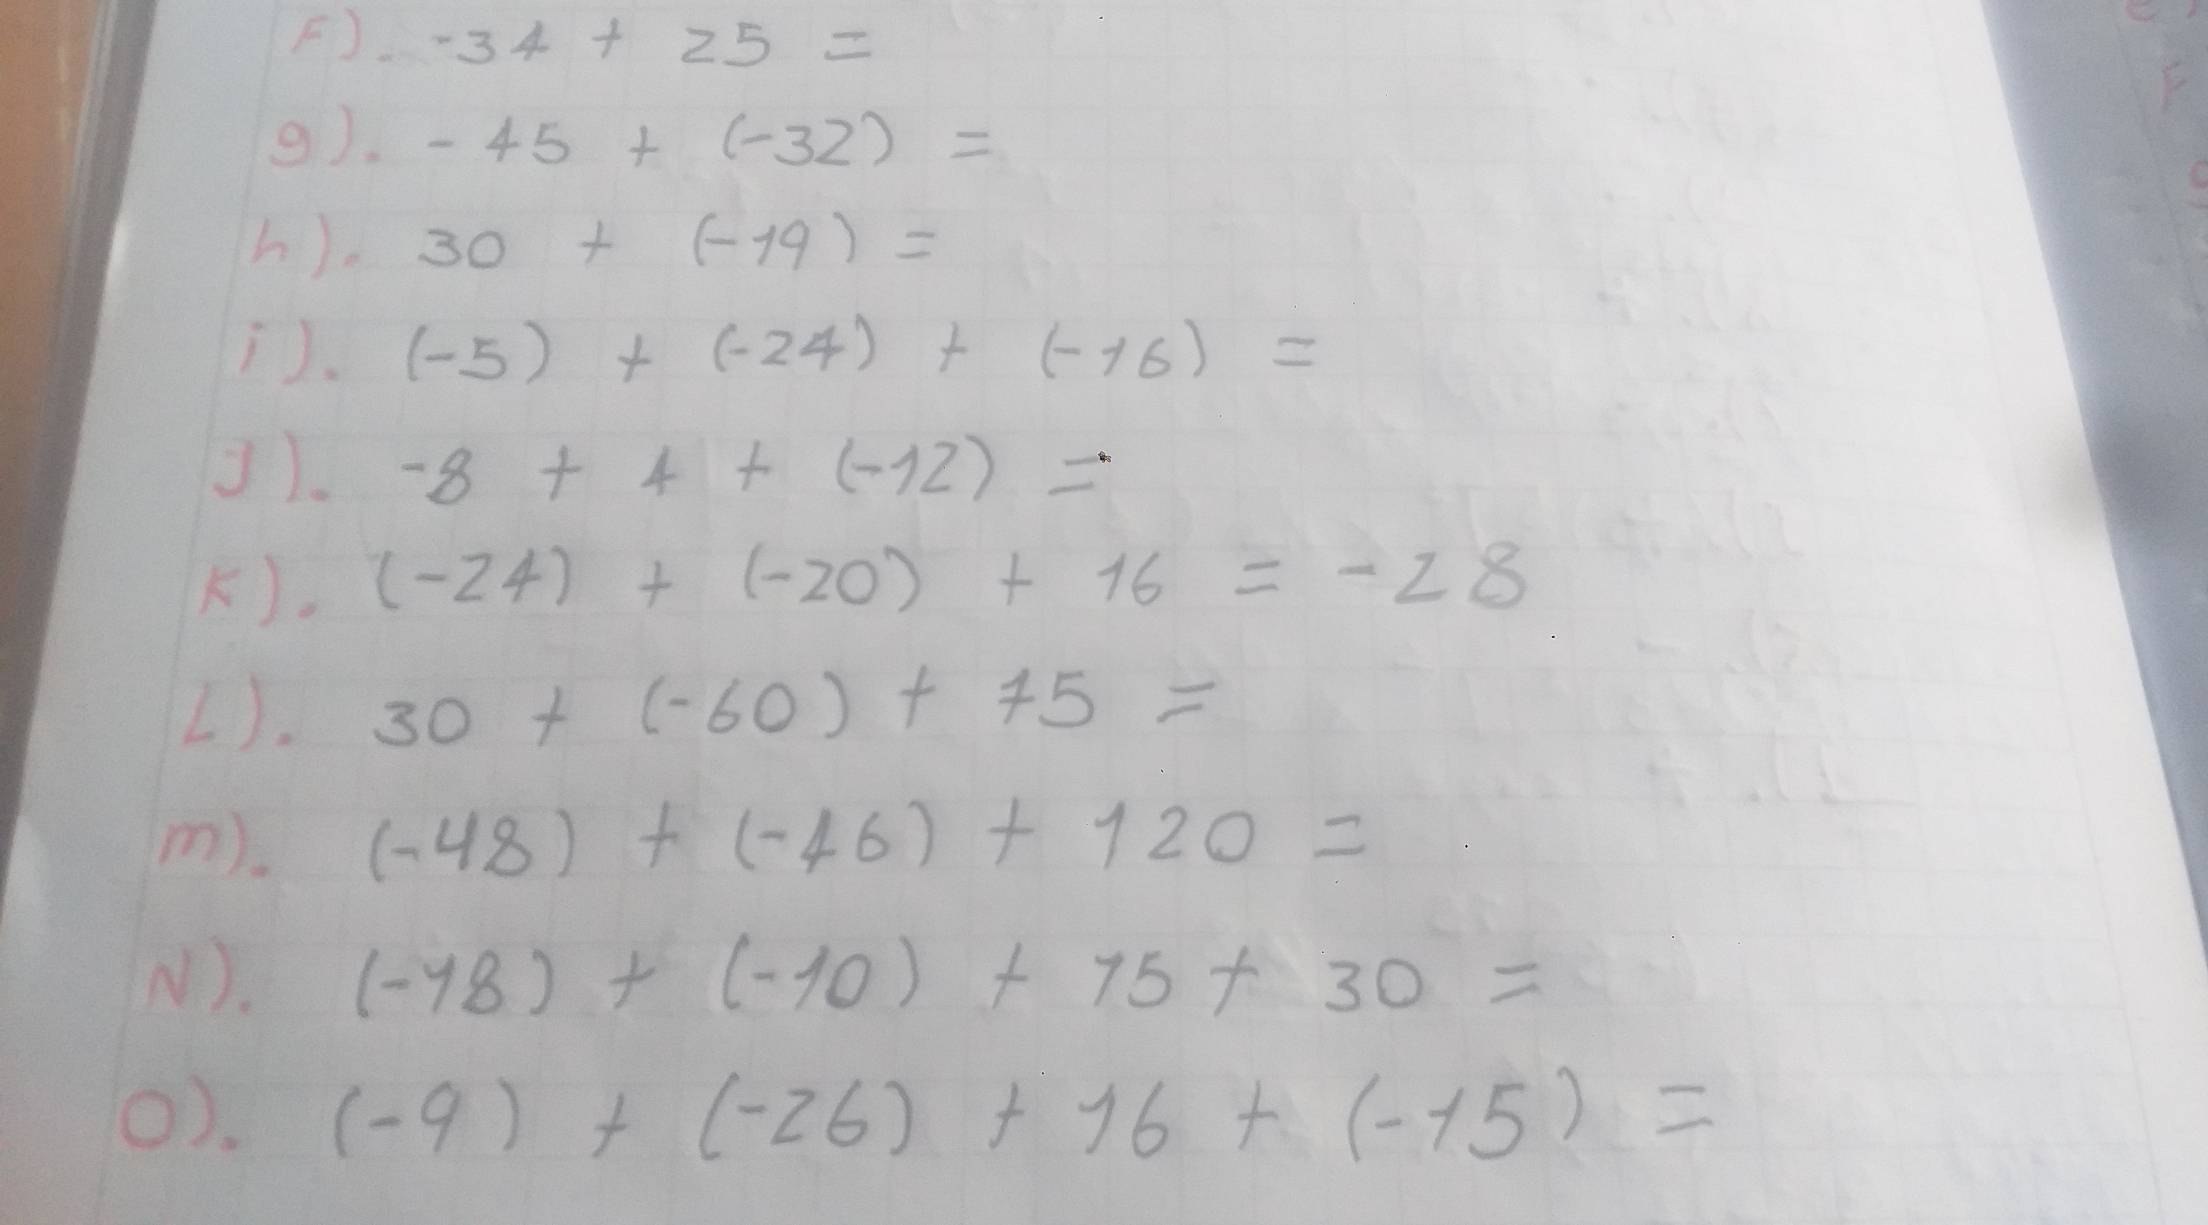 F). -34 + 25 =
g). - 45 + (-32) =
h). 30 + (-19) =
i). (-5) + (-24) + (-16) =
J). -8 + 4 + (-12) =
K). (-24) + (-20) + 16 = -28
L). 30 + (-60) + 75 =
m). (-48) + (-46) + 120 =
N). (-18) + (-10) + 15 + 30 =
O). (-9) + (-26) + 16 + (-15) =